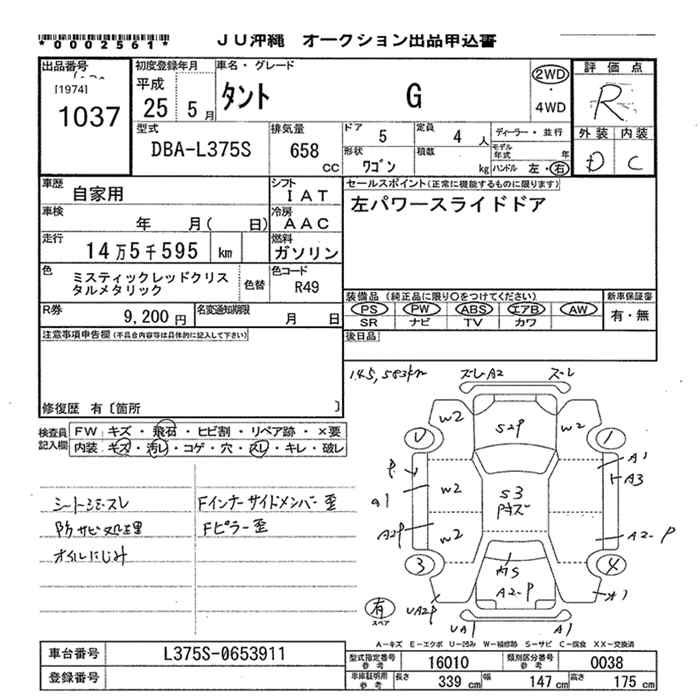 *0002561*
ＪＵ沖縄　オークション出品申込書
出品番号
[1974]
1037
初度登録年月
平成
25 5月
車名・グレード
タント G
2WD
・
4WD
評価点
R
外装 内装
D C
型式
DBA-L375S
排気量
658 cc
ドア 5
定員 4 人
ディーラー・並行
形状 ワゴン
積数 kg
モデル年式 年
ハンドル 左・右
車歴 自家用
シフト IAT
セールスポイント(正常に機能するものに限ります)
左パワースライドドア
車検 年 月( 日)
冷房 AAC
走行 14万5千595 km
燃料 ガソリン
色 ミスティックレッドクリス
タルメタリック
色替
色コード R49
装備品 (純正品に限り○をつけてください)
新車保証書
PS PW ABS エアB AW
SR ナビ TV カワ
有・無
R券 9,200円
名変通知期限 月 日
後日品
注意事項申告欄(不具合内容等は具体的に記入して下さい)
修復歴 有〔箇所 〕
検査員
記入欄
FW キズ・飛石・ヒビ割・リペア跡・×要
内装 キズ・汚レ・コゲ・穴・スレ・キレ・破レ
シートシミ・スレ
防サビ処理
オイルにじみ
Fインナーサイドメンバー歪
Fピラー歪
145,583km
ズレA2 ズレ
W2 S2P W2
A1
P
A3
a1 W2 S3
A2P W2
A2-P
3 4
A2-P
UA2P
オ1
UA1 A1
有
スペア
A-キズ E-エクボ U-凹み W-補修跡 S-サビ C-腐食 XX-交換済
車台番号 L375S-0653911
登録番号
型式指定番号
参考
16010
類別区分番号
参考
0038
車庫証明用
参考
長さ 339 cm
幅 147 cm
高さ 175 cm